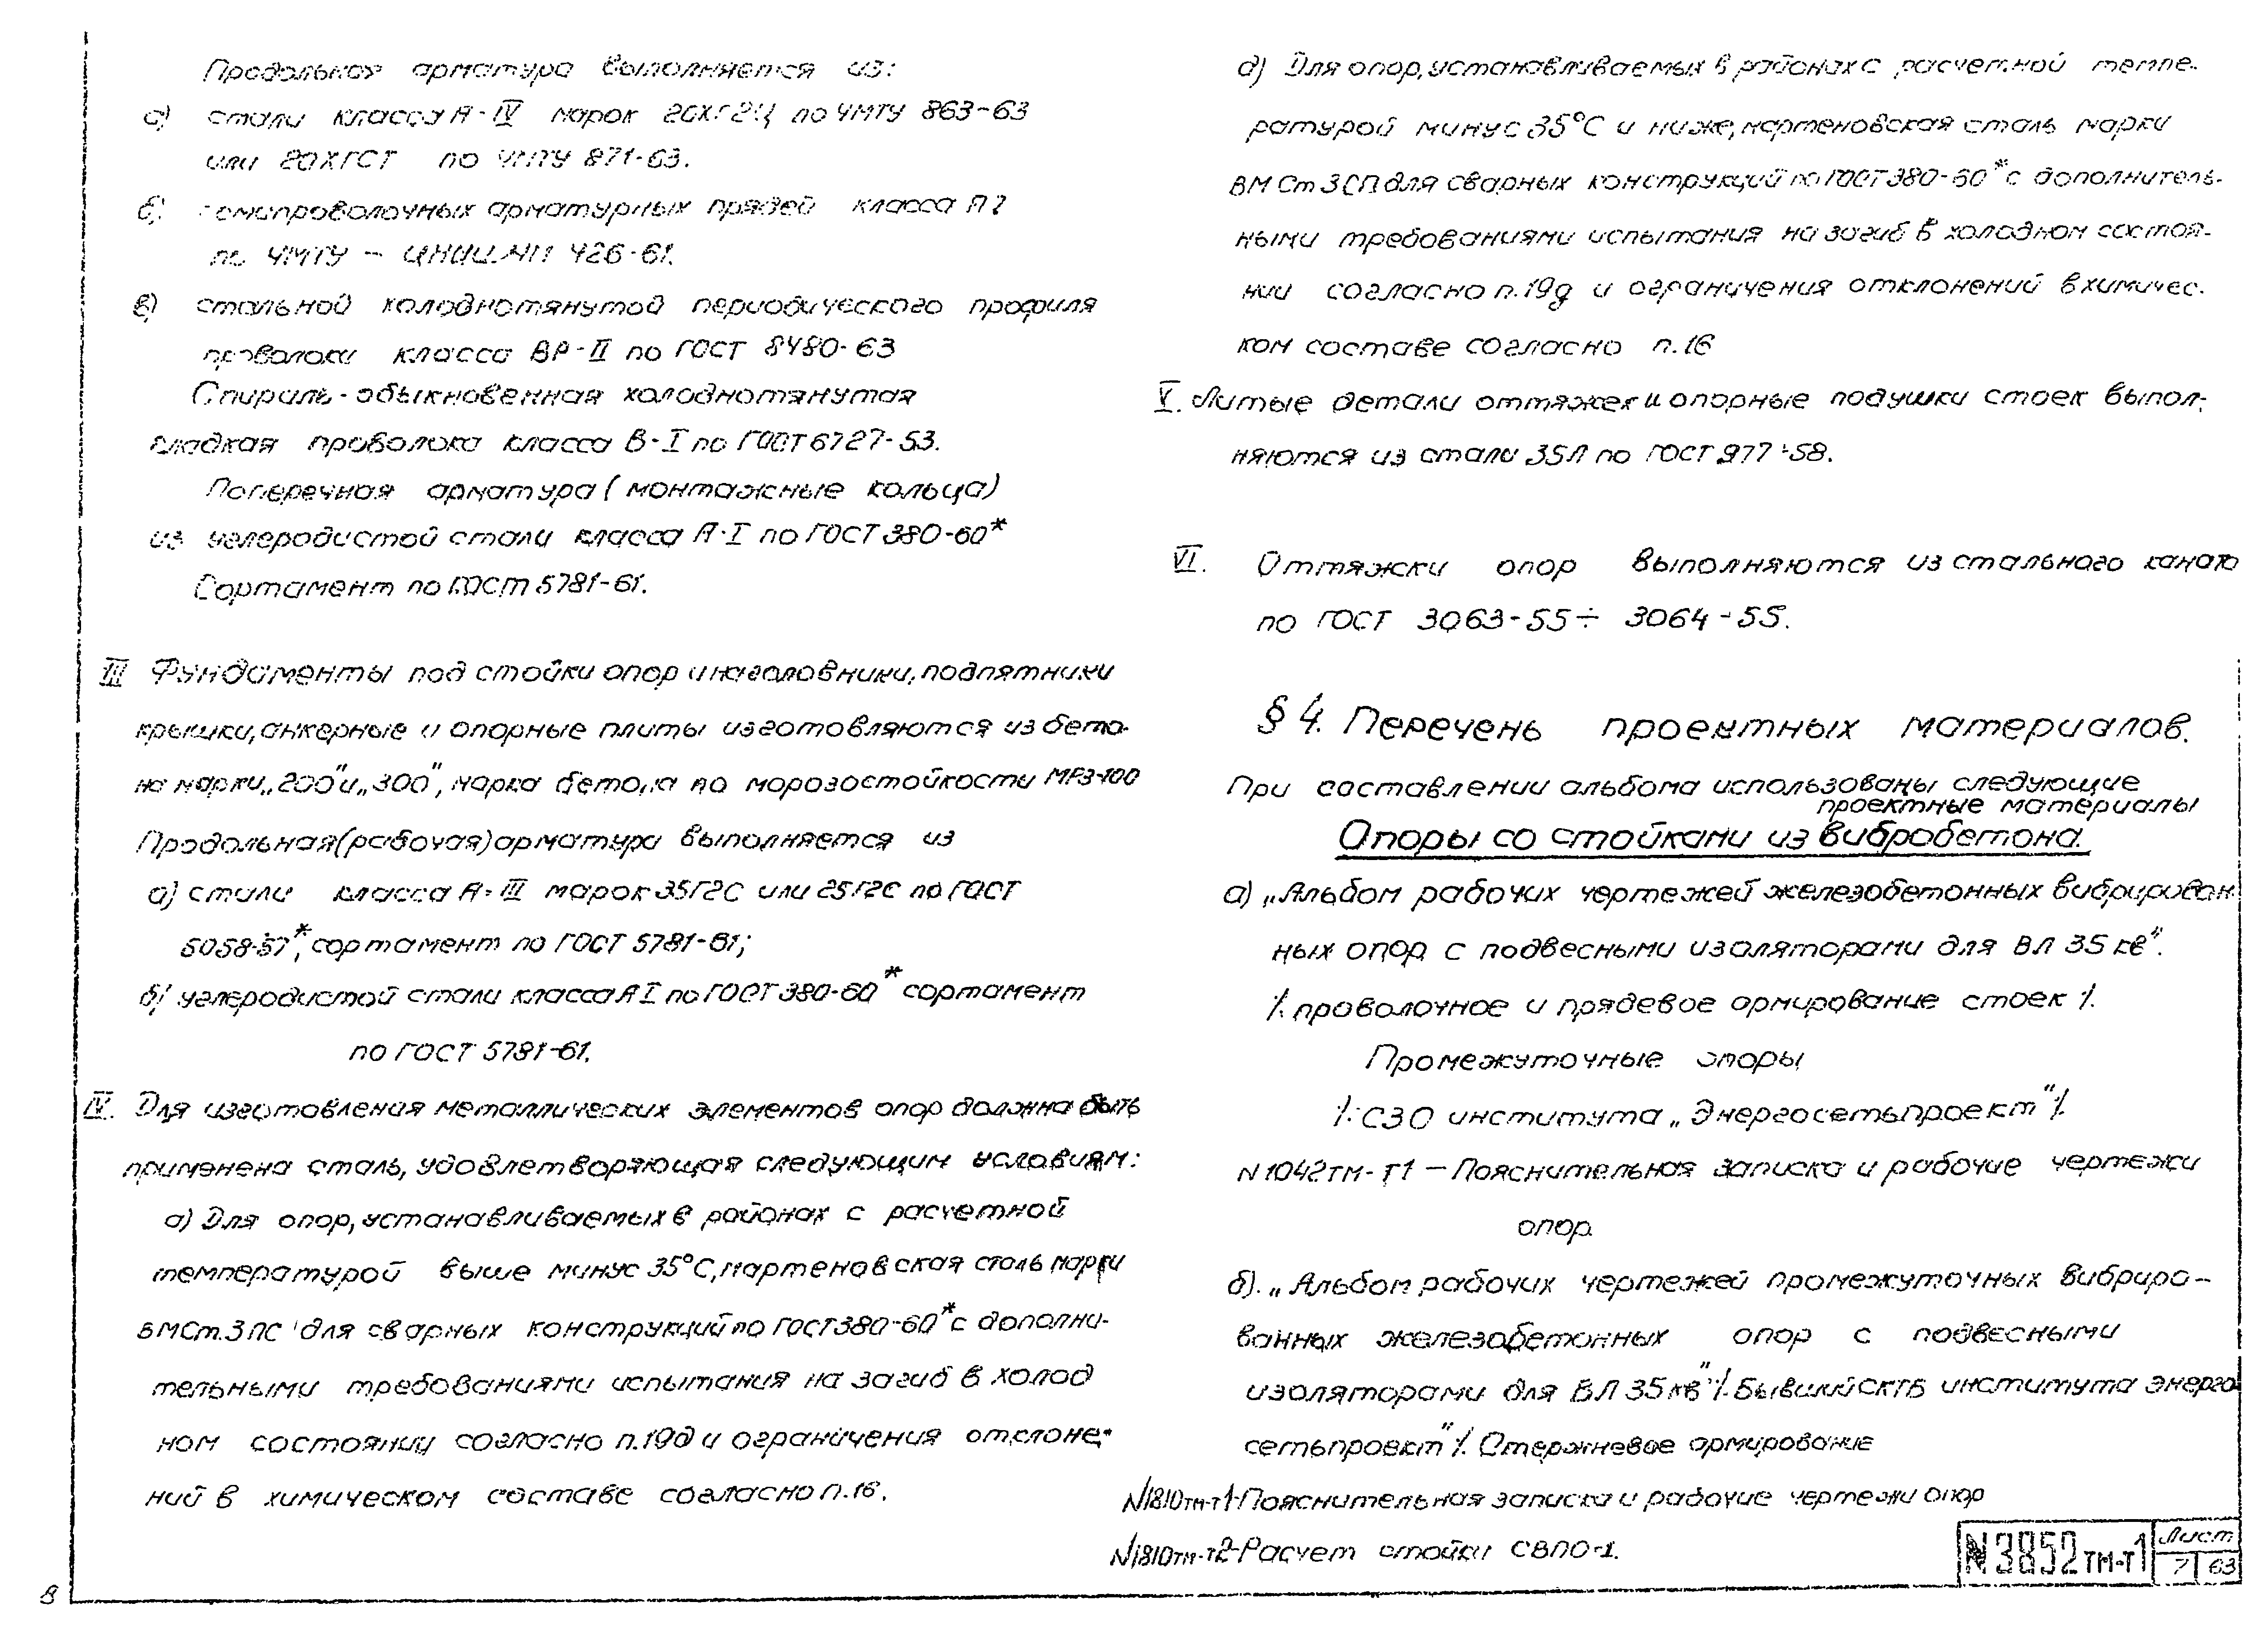 Продольная арматура выполняется из:
а) стали класса А-IV марок 20ХГ2Ц по ЧМТУ 863-63
или 20ХГСТ по ЧМТУ 871-63.
б) семипроволочных арматурных прядей класса П7
по ЧМТУ - ЦНИИЧМ 426-61.
в) стальной холоднотянутой периодического профиля
проволоки класса ВР-II по ГОСТ 8480-63
Спираль-обыкновенная холоднотянутая
гладкая проволока класса В-I по ГОСТ 6727-53.
Поперечная арматура (монтажные кольца)
из углеродистой стали класса А-I по ГОСТ 380-60*
Сортамент по ГОСТ 5781-61.
III Фундаменты под стойки опор и наголовники, подпятники
крышки, анкерные и опорные плиты изготовляются из бето-
на марки „200" и „300", марка бетона по морозостойкости МРЗ-100
Продольная (рабочая) арматура выполняется из
а) стали класса А-III марок 35Г2С или 25Г2С по ГОСТ
5058-57*, сортамент по ГОСТ 5781-61;
б) углеродистой стали класса А I по ГОСТ 380-60* сортамент
по ГОСТ 5781-61.
IV. Для изготовления металлических элементов опор должна быть
применена сталь, удовлетворяющая следующим условиям:
а) Для опор, устанавливаемых в районах с расчетной
температурой выше минус 35°С, мартеновская сталь марки
ВМСт.3ПС для сварных конструкций по ГОСТ 380-60* с дополни-
тельными требованиями испытания на загиб в холод
ном состоянии согласно п.19д и ограничения отклоне-
ний в химическом составе согласно п.16.
д) Для опор, устанавливаемых в районах с расчетной темпе-
ратурой минус 35°С и ниже, мартеновская сталь марки
ВМ Ст 3 СП для сварных конструкций по ГОСТ 380-60* с дополнитель-
ными требованиями испытания на загиб в холодном состоя-
нии согласно п.19д и ограничения отклонений в химичес-
ком составе согласно п.16
V. Литые детали оттяжек и опорные подушки стоек выпол-
няются из стали 35Л по ГОСТ 977-58.
VI. Оттяжки опор выполняются из стального каната
по ГОСТ 3063-55÷ 3064-55.
§ 4. Перечень проектных материалов.
При составлении альбома использованы следующие
проектные материалы
Опоры со стойками из вибробетона.
а) „Альбом рабочих чертежей железобетонных вибрирован
ных опор с подвесными изоляторами для ВЛ 35 кв".
/. проволочное и прядевое армирование стоек /.
Промежуточные опоры
/: СЗО института „Энергосетьпроект" /.
N 1042тм-т1 - Пояснительная записка и рабочие чертежи
опор.
б). „Альбом рабочих чертежей промежуточных вибриро-
ванных железобетонных опор с подвесными
изоляторами для ВЛ 35 кв" /. Бывший СКТБ института энерго
сетьпроект" /. Стержневое армирование
N1810тм-т1-Пояснительная записка и рабочие чертежи опор
N1810тм-т2-Расчет стойки СВПО-1.
N3852тм-т1 Лист
7 63
8